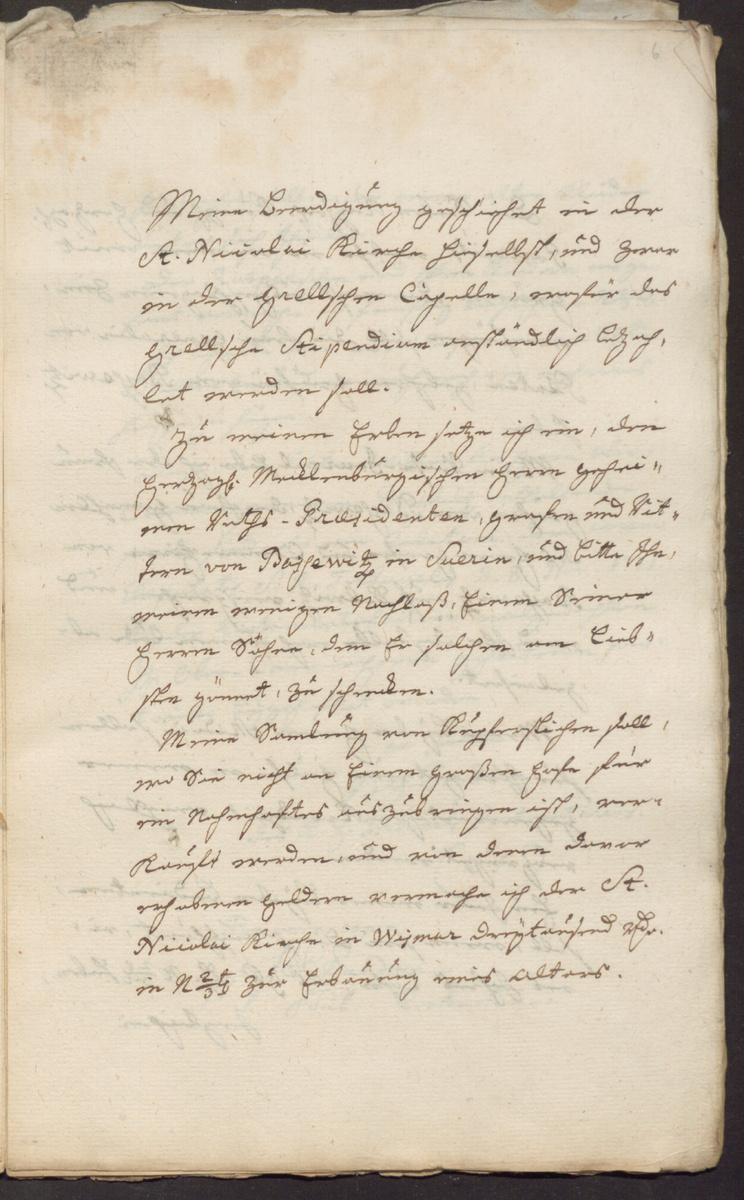 6
Meine Beerdigung geschiehet in der
St. Nicolai Kirche hieselbst, und zwar
in der Grellschen Capelle, wofür das
Grellsche Stipendium anständlich bezah,
let werden soll.
Zu meinem Erben setze ich ein, den
Herzogl. Mecklenburgischen Herrn Gehei=
men Raths-Præsidenten, Grafen und Rit=
tern von Bassewitz in Suerin, und bitte Ihn,
meinen wenigen Nachlaß, Einem Seiner
Herren Söhne, dem Er solchen am Lieb=
sten gönnet, zu schencken.
Meine Samlung von Kupferstichen soll,
wo Sie nicht an Einem großen Hofe für
ein Nahmhaftes auszubringen ist, ver=
kauft werden, und von denen davor
erhobenen Geldern vermache ich der St.
Nicolai Kirche in Wismar dreytausend Rthr.
in N 2/3 zur Erbauung eines Altars.